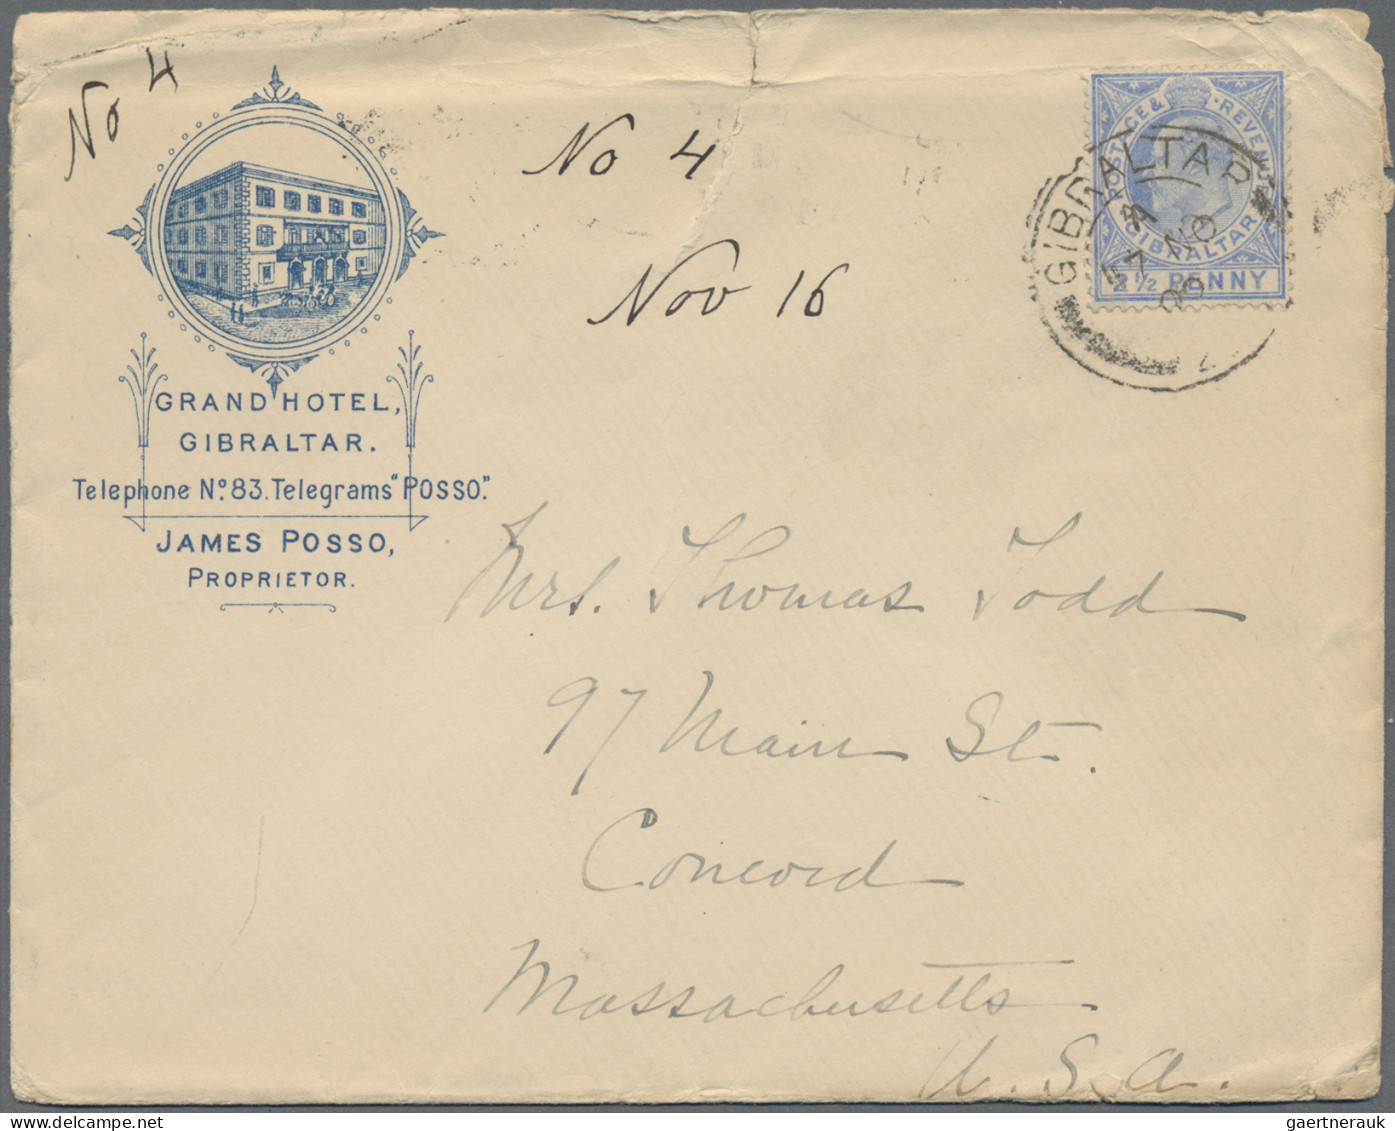 No 4
No 4
Nov 16
GRAND HOTEL,
GIBRALTAR.
Telephone Nº 83. Telegrams "POSSO."
JAMES POSSO,
PROPRIETOR.
POSTAGE & REVENUE
GIBRALTAR
2½ PENNY
GIBRALTAR
A
NO
09
Mrs. Thomas Todd
97 Main St.
Concord
Massachusetts
U.S.A.
gaertnerauk